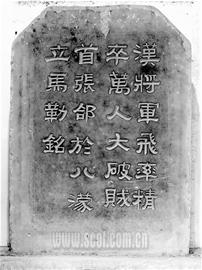 漢將軍飛率精
卒萬人大破賊
首張郃於八濛
立馬勒銘
www.scol.com.cn